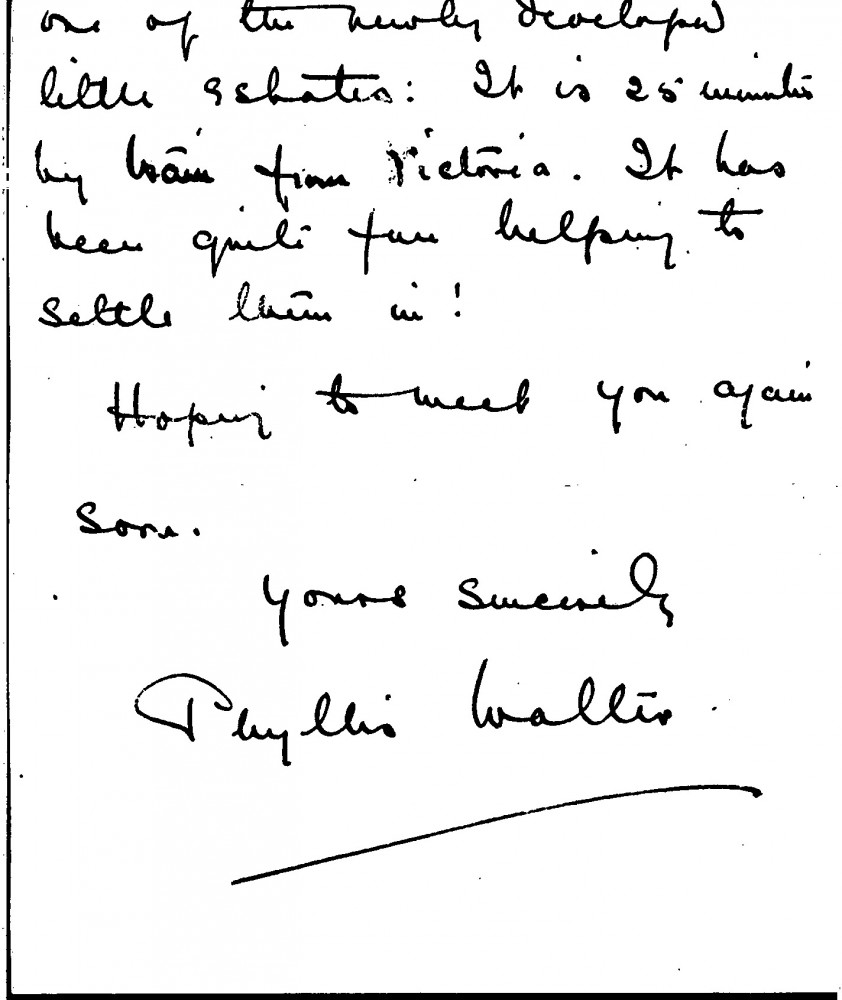 one of the newly developed
little estates: It is 25 minutes
by train from Victoria. It has
been quite fun helping to
settle them in!
Hoping to meet you again
soon.
Yours sincerely
Phyllis Walter